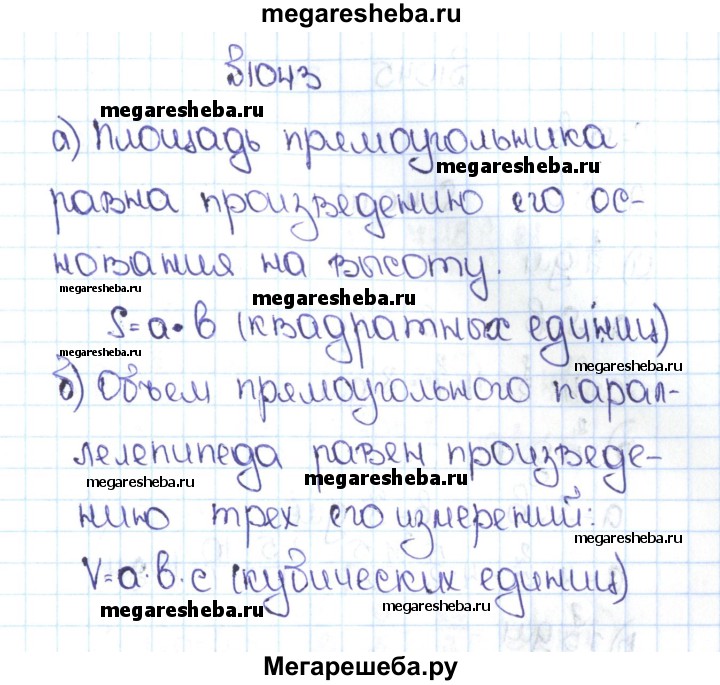 megaresheba.ru
№1043
megaresheba.ru
а) Площадь прямоугольника
megaresheba.ru
равна произведению его ос-
нования на высоту.
megaresheba.ru
megaresheba.ru
S=a·b (квадратных единиц)
megaresheba.ru
megaresheba.ru
б) Объем прямоугольного парал-
лелепипеда равен произведе-
megaresheba.ru
megaresheba.ru
нию трех его измерений:
megaresheba.ru
V=a·b·c (кубических единиц)
megaresheba.ru
megaresheba.ru
megaresheba.ru
Мегарешеба.ру